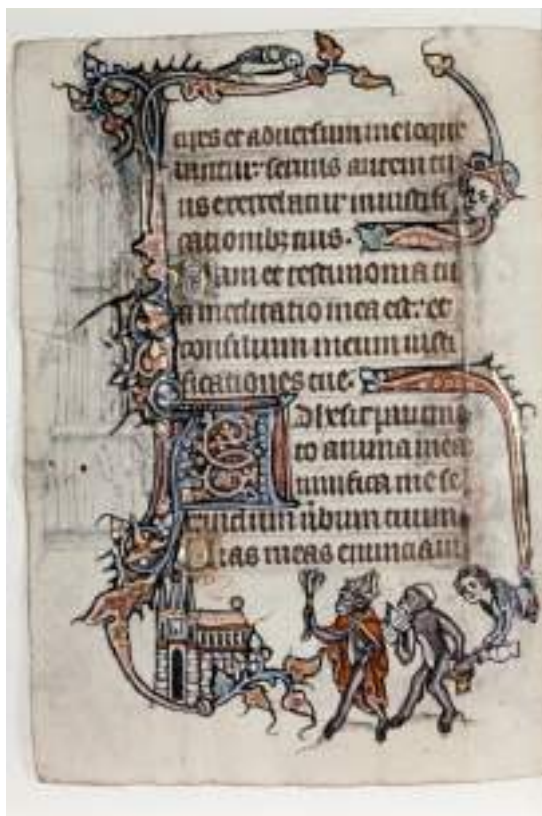 cipes et aduersum me loque
bantur: seruus autem tu
us exercebatur in iustifi
cationibz tuis.
Nam et testimonia tu
a meditatio mea est: et
consilium meum iusti
ficationes tue.
Adhesit pauime
to anima mea
uiuifica me se
cundum ubum tuum
Uias meas enunciaui